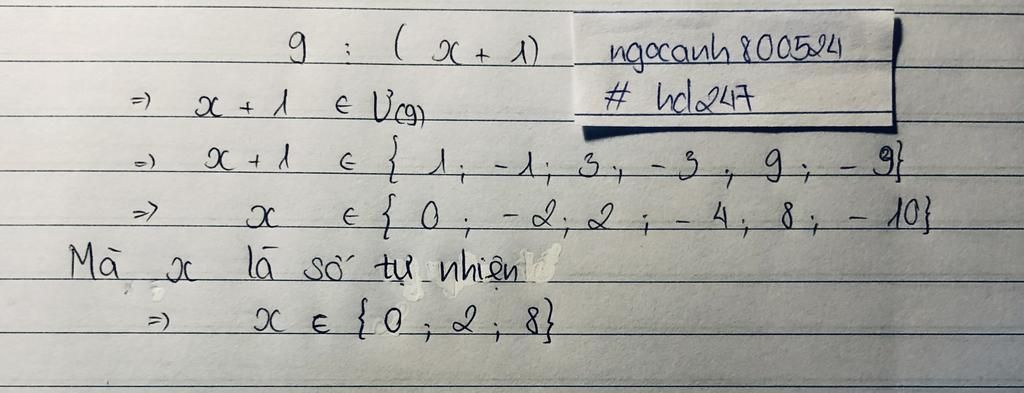 9 : ( x + 1)
ngocanh800524
# hd247
=> x + 1 ∈ Ư(9)
=> x + 1 ∈ { 1 ; -1 ; 3 ; -3 , 9 ; - 9}
=> x ∈ { 0 ; -2 ; 2 ; - 4 ; 8 ; - 10}
Mà x là số tự nhiên
=> x ∈ { 0 ; 2 ; 8}